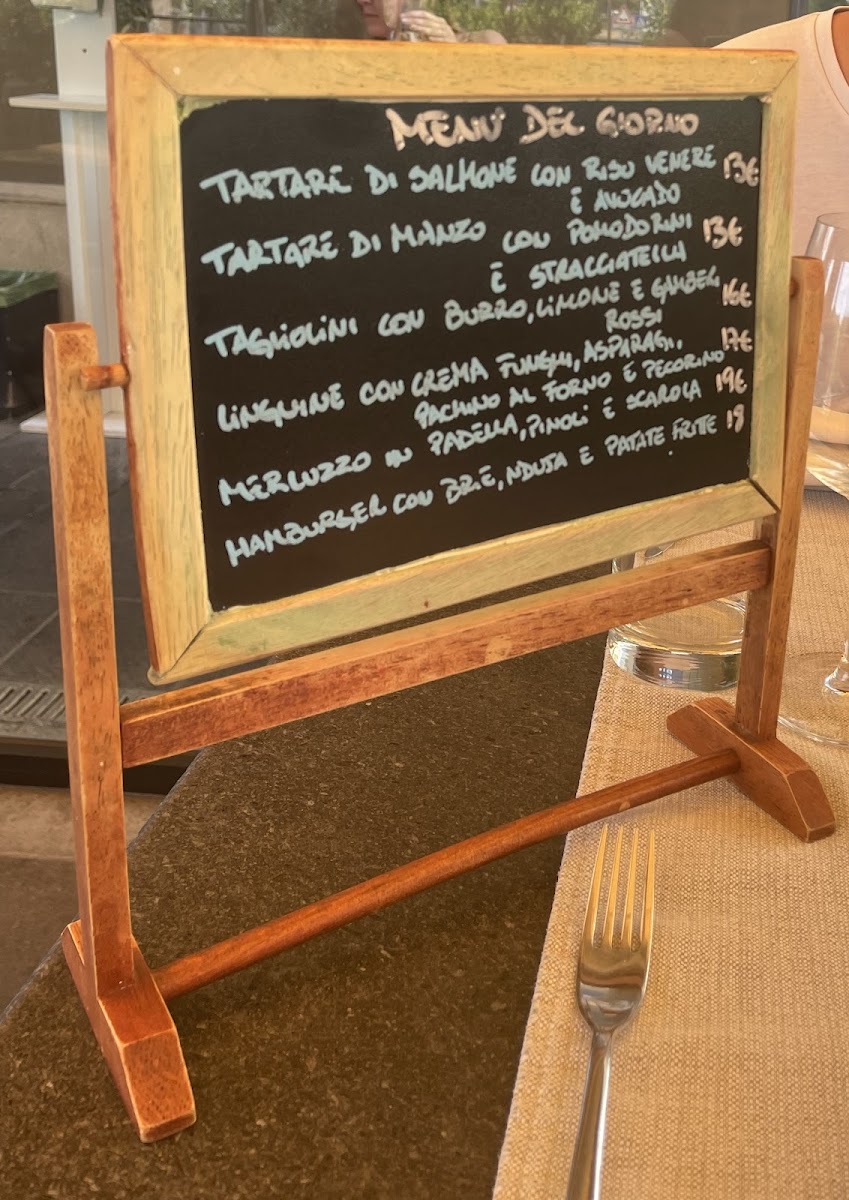 MENU' DEL GIORNO
TARTARE DI SALMONE CON RISO VENERE 13€
E AVOCADO
TARTARE DI MANZO CON POMODORINI 13€
E STRACCIATELLA
TAGLIOLINI CON BURRO, LIMONE E GAMBERI 16€
ROSSI
LINGUINE CON CREMA FUNGHI, ASPARAGI, 17€
PACHINO AL FORNO E PECORINO
MERLUZZO IN PADELLA, PINOLI E SCAROLA 19€
HAMBURGER CON BRIE, NDUJA E PATATE FRITTE 18